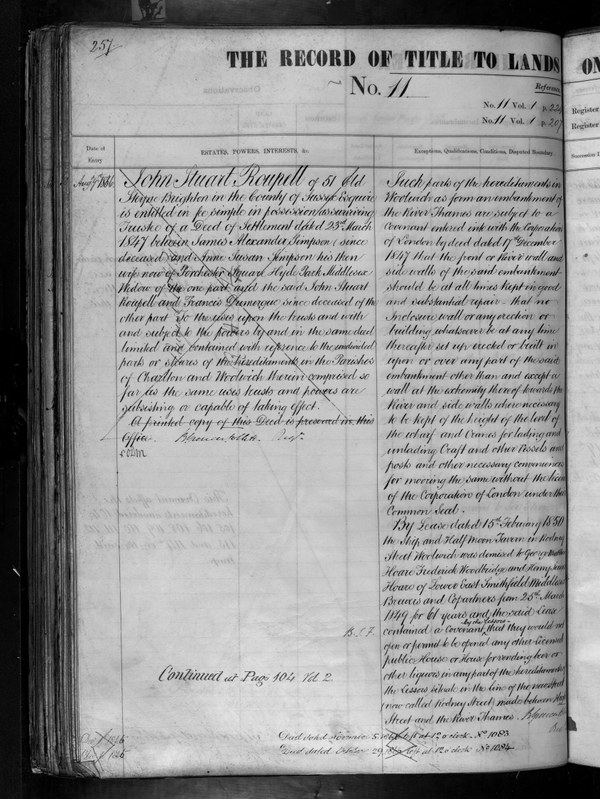 257
THE RECORD OF TITLE TO LANDS
ON
No. 11
References
No. 11 Vol. 1 p. 224
No. 11 Vol. 1 p. 207
Register
Register
Date of
Entry
ESTATES, POWERS, INTERESTS, &c.
Exceptions, Qualifications, Conditions, Disputed Boundary
John Stuart Roupell of 51 Old
Steyne Brighton in the County of Sussex Esquire
is entitled in fee simple in possession as surviving
Trustee of a Deed of Settlement dated 23rd March
1847 between James Alexander Simpson (since
deceased) and Anne Susan Simpson his then
wife now of Porchester Square Hyde Park Middlesex
Widow of the one part and the said John Stuart
Roupell and Francis Dumergue since deceased of the
other part To the uses upon the trusts and with
and subject to the powers by and in the same deed
limited and contained with reference to the undivided
parts or shares of the hereditaments in the Parishes
of Charlton and Woolwich therein comprised so
far as the same uses trusts and powers are
subsisting or capable of taking effect.
A printed copy of this Deed is preserved in this
Office.
Such parts of the hereditaments in
Woolwich as form an embankment of
the River Thames are subject to a
Covenant entered into with the Corporation
of London by deed dated 17th December
1847 that the front or River wall and
side walls of the said embankment
should be at all times kept in good
and substantial repair that no
Inclosure wall or any erection or
building whatsoever be at any time
thereafter set up erected or built in
upon or over any part of the said
embankment other than and except a
wall at the extremity thereof towards the
River and side walls where necessary
to be kept of the height of the level of
the wharf and Cranes for lading and
unlading Craft and other Vessels and
posts and other necessary conveniences
for mooring the same without the licence
of the Corporation of London under their
Common Seal.
By Lease dated 15th February 1850
the Ship and Half Moon Tavern in Rodney
Street Woolwich was demised to George Matthew
Hoare Frederick Woodbridge and Henry James
Hoare of Lower East Smithfield Middlesex
Brewers and Copartners from 25th March
1849 for 61 years and the said Lease
contained a Covenant by the Lessors that they would not
open or permit to be opened any other Licensed
public House or House for vending beer or
other liquors in any part of the hereditaments of
the Lessors situate in the line of the new street
(now called Rodney Street) made between High
Street and the River Thames.
Continued at Page 104 Vol. 2.
at 12 o'clock. No 1083
Deed dated October 29 1869 at 12 o'clock No 1084